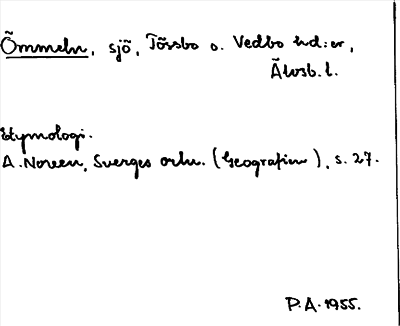 Ömmeln, sjö, Tössbo o. Vedbo hd:er,
Älvsb. l.
Etymologi.
A. Noreen, Sverges ortn. (Geografien), s. 27.
P.A. 1955.